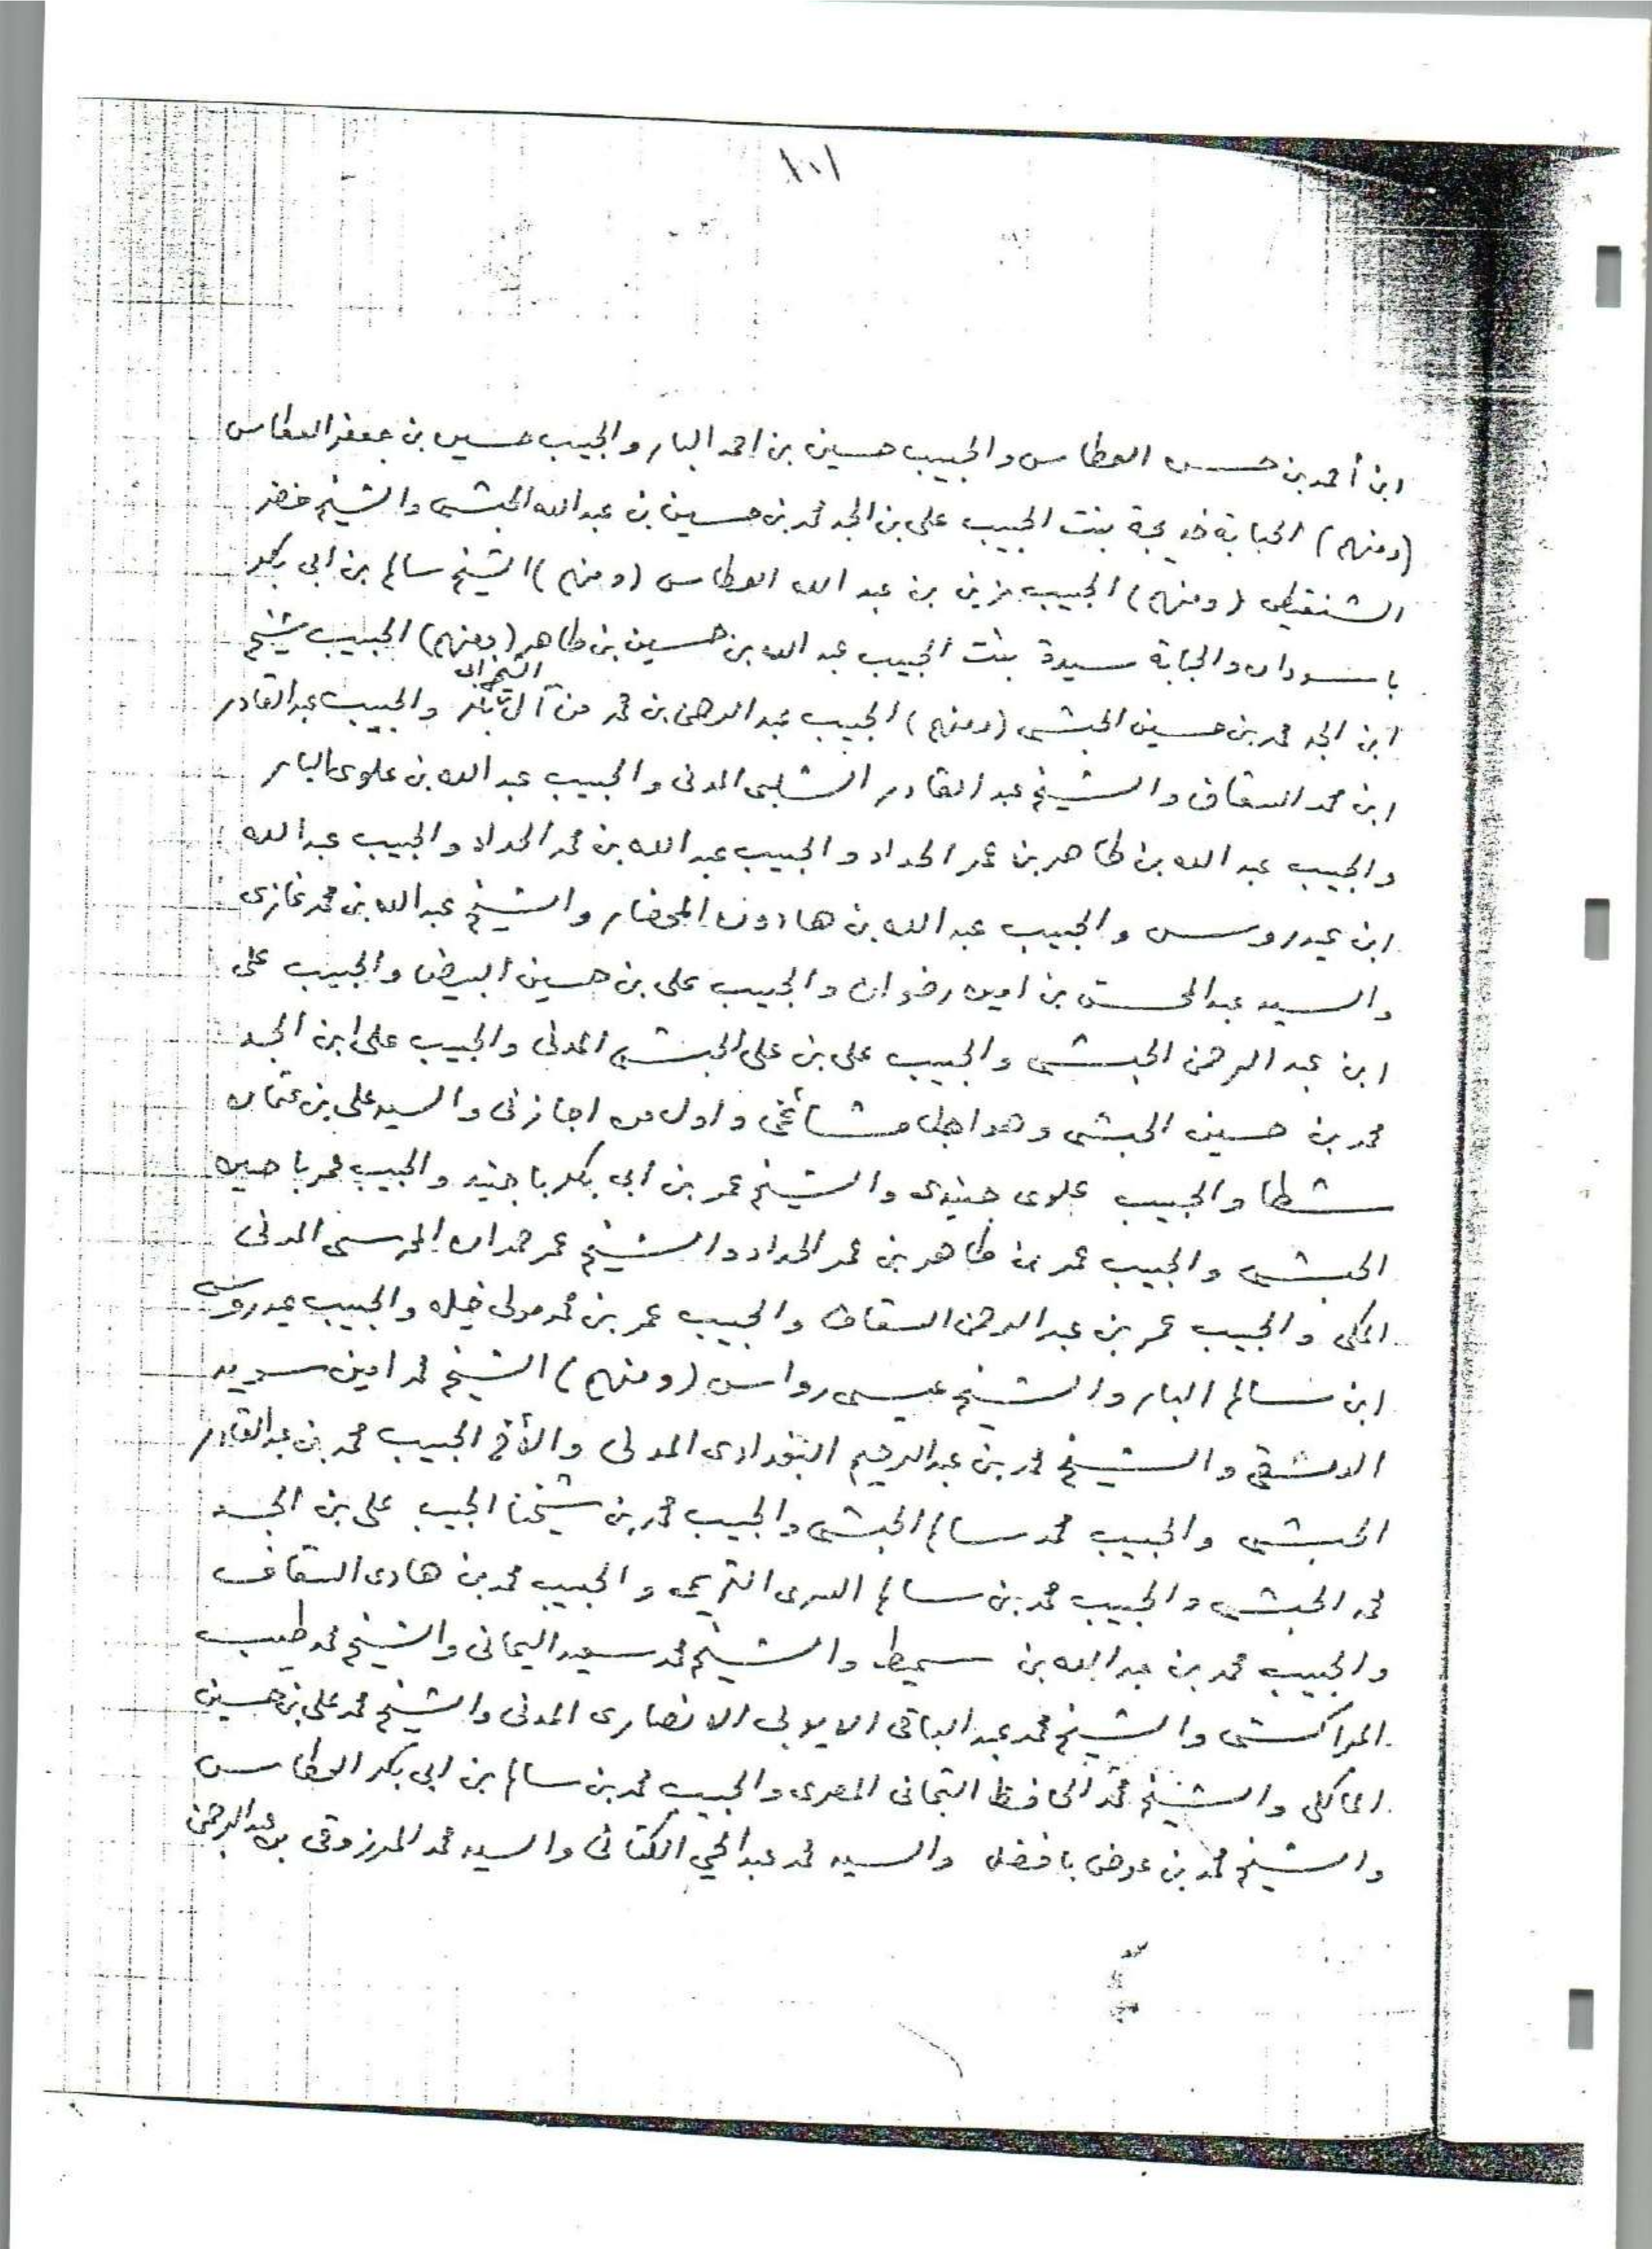 ١٠١
ابن أحمد بن حسن العطاس والحبيب حسين بن احمد البار والحبيب حسين بن جعفر العطاس
(ومنهم) الحبابة خديجة بنت الحبيب على بن الجد محمد بن حسين بن عبدالله الحبشى والشيخ خضر
الشنقيطى (ومنهم) الحبيب زين بن عبد الله العطاس (ومنهم) الشيخ سالم بن ابى بكر
باسودان والحبابة سيدة بنت الحبيب عبد الله بن حسين بن طاهر (ومنهم) الحبيب شيخ
ابن الجد محمد بن حسين الحبشى (ومنهم) الحبيب عبد الرحمن بن محمد من آل الشيخ ابى بكر والحبيب عبدالقادر
ابن محمد السقاف والشيخ عبد القادر الشلبى المدنى والحبيب عبد الله بن علوى البار
والحبيب عبد الله بن طاهر بن عمر الحداد والحبيب عبد الله بن محمد الحداد والحبيب عبد الله
ابن عيدروس والحبيب عبد الله بن هادون المحضار والشيخ عبد الله بن محمد غازى
والسيد عبدالمحسن بن امين رضوان والحبيب على بن حسين البيض والحبيب على
ابن عبد الرحمن الحبشى والحبيب على بن على الحبشى المدنى والحبيب على ابن الجد
محمد بن حسين الحبشى وهو اجل مشائخى واول من اجازنى والسيد على بن عثمان
شطا والحبيب علوى جنيدى والشيخ عمر بن ابى بكر باجنيد والحبيب عمر با حسين
الحبشى والحبيب عمر بن طاهر بن عمر الحداد والشيخ عمر حمدان المحرسى المدنى
المكى والحبيب عمر بن عبد الرحمن السقاف والحبيب عمر بن محمد مولى خيله والحبيب عيدروس
ابن سالم البار والشيخ عيسى رواس (ومنهم) الشيخ محمد امين سويد
الدمشقى والشيخ محمد بن عبدالرحيم البغدادى المدنى والأخ الحبيب محمد بن عبد القادر
الحبشى والحبيب محمد سالم الحبشى والحبيب محمد بن شيخنا الحبيب على بن الجد
محمد الحبشى والحبيب محمد بن سالم السرى التريمى والحبيب محمد بن هادى السقاف
والحبيب محمد بن عبد الله بن سميط والشيخ محمد سعيد اليمانى والشيخ محمد طيب
المراكشى والشيخ محمد عبد الباقى الايوبى الانصارى المدنى والشيخ محمد على بن حسين
المالكى والشيخ محمد الحافظ التجانى المصرى والحبيب محمد بن سالم بن ابى بكر العطاس
والشيخ محمد بن عوض بافضل والسيد محمد عبد الحي الكتانى والسيد محمد المرزوقى بن عبدالرحمن